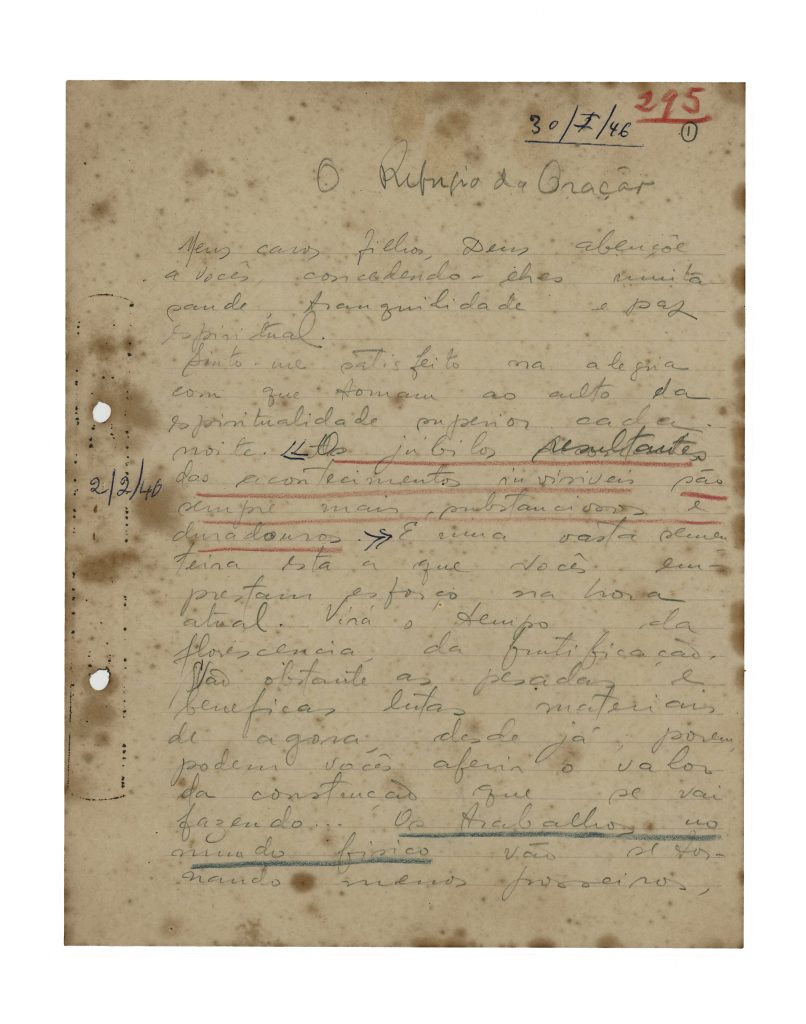 295
30/I/46
1
O Refugio da Oração
Meus caros filhos, Deus abençôe
a vocês, concedendo-lhes muita
saude, tranquilidade e paz
espiritual.
Sinto-me satisfeito na alegria
com que tornam ao culto da
espiritualidade superior cada
noite. « Os júbilos resultantes
das acontecimentos invisiveis são
sempre mais substanciosos e
duradouros. » E uma vasta semen
2/2/46
teira esta a que vocês em-
prestam esforço na hora
atual. Virá o tempo da
florescencia, da frutificação.
Não obstante as pesadas e
beneficas lutas materiais
de agora, desde já, porem,
podem vocês aferir o valor
da construção que se vai
fazendo... Os trabalhos no
mundo fisico vão se tor-
nando menos